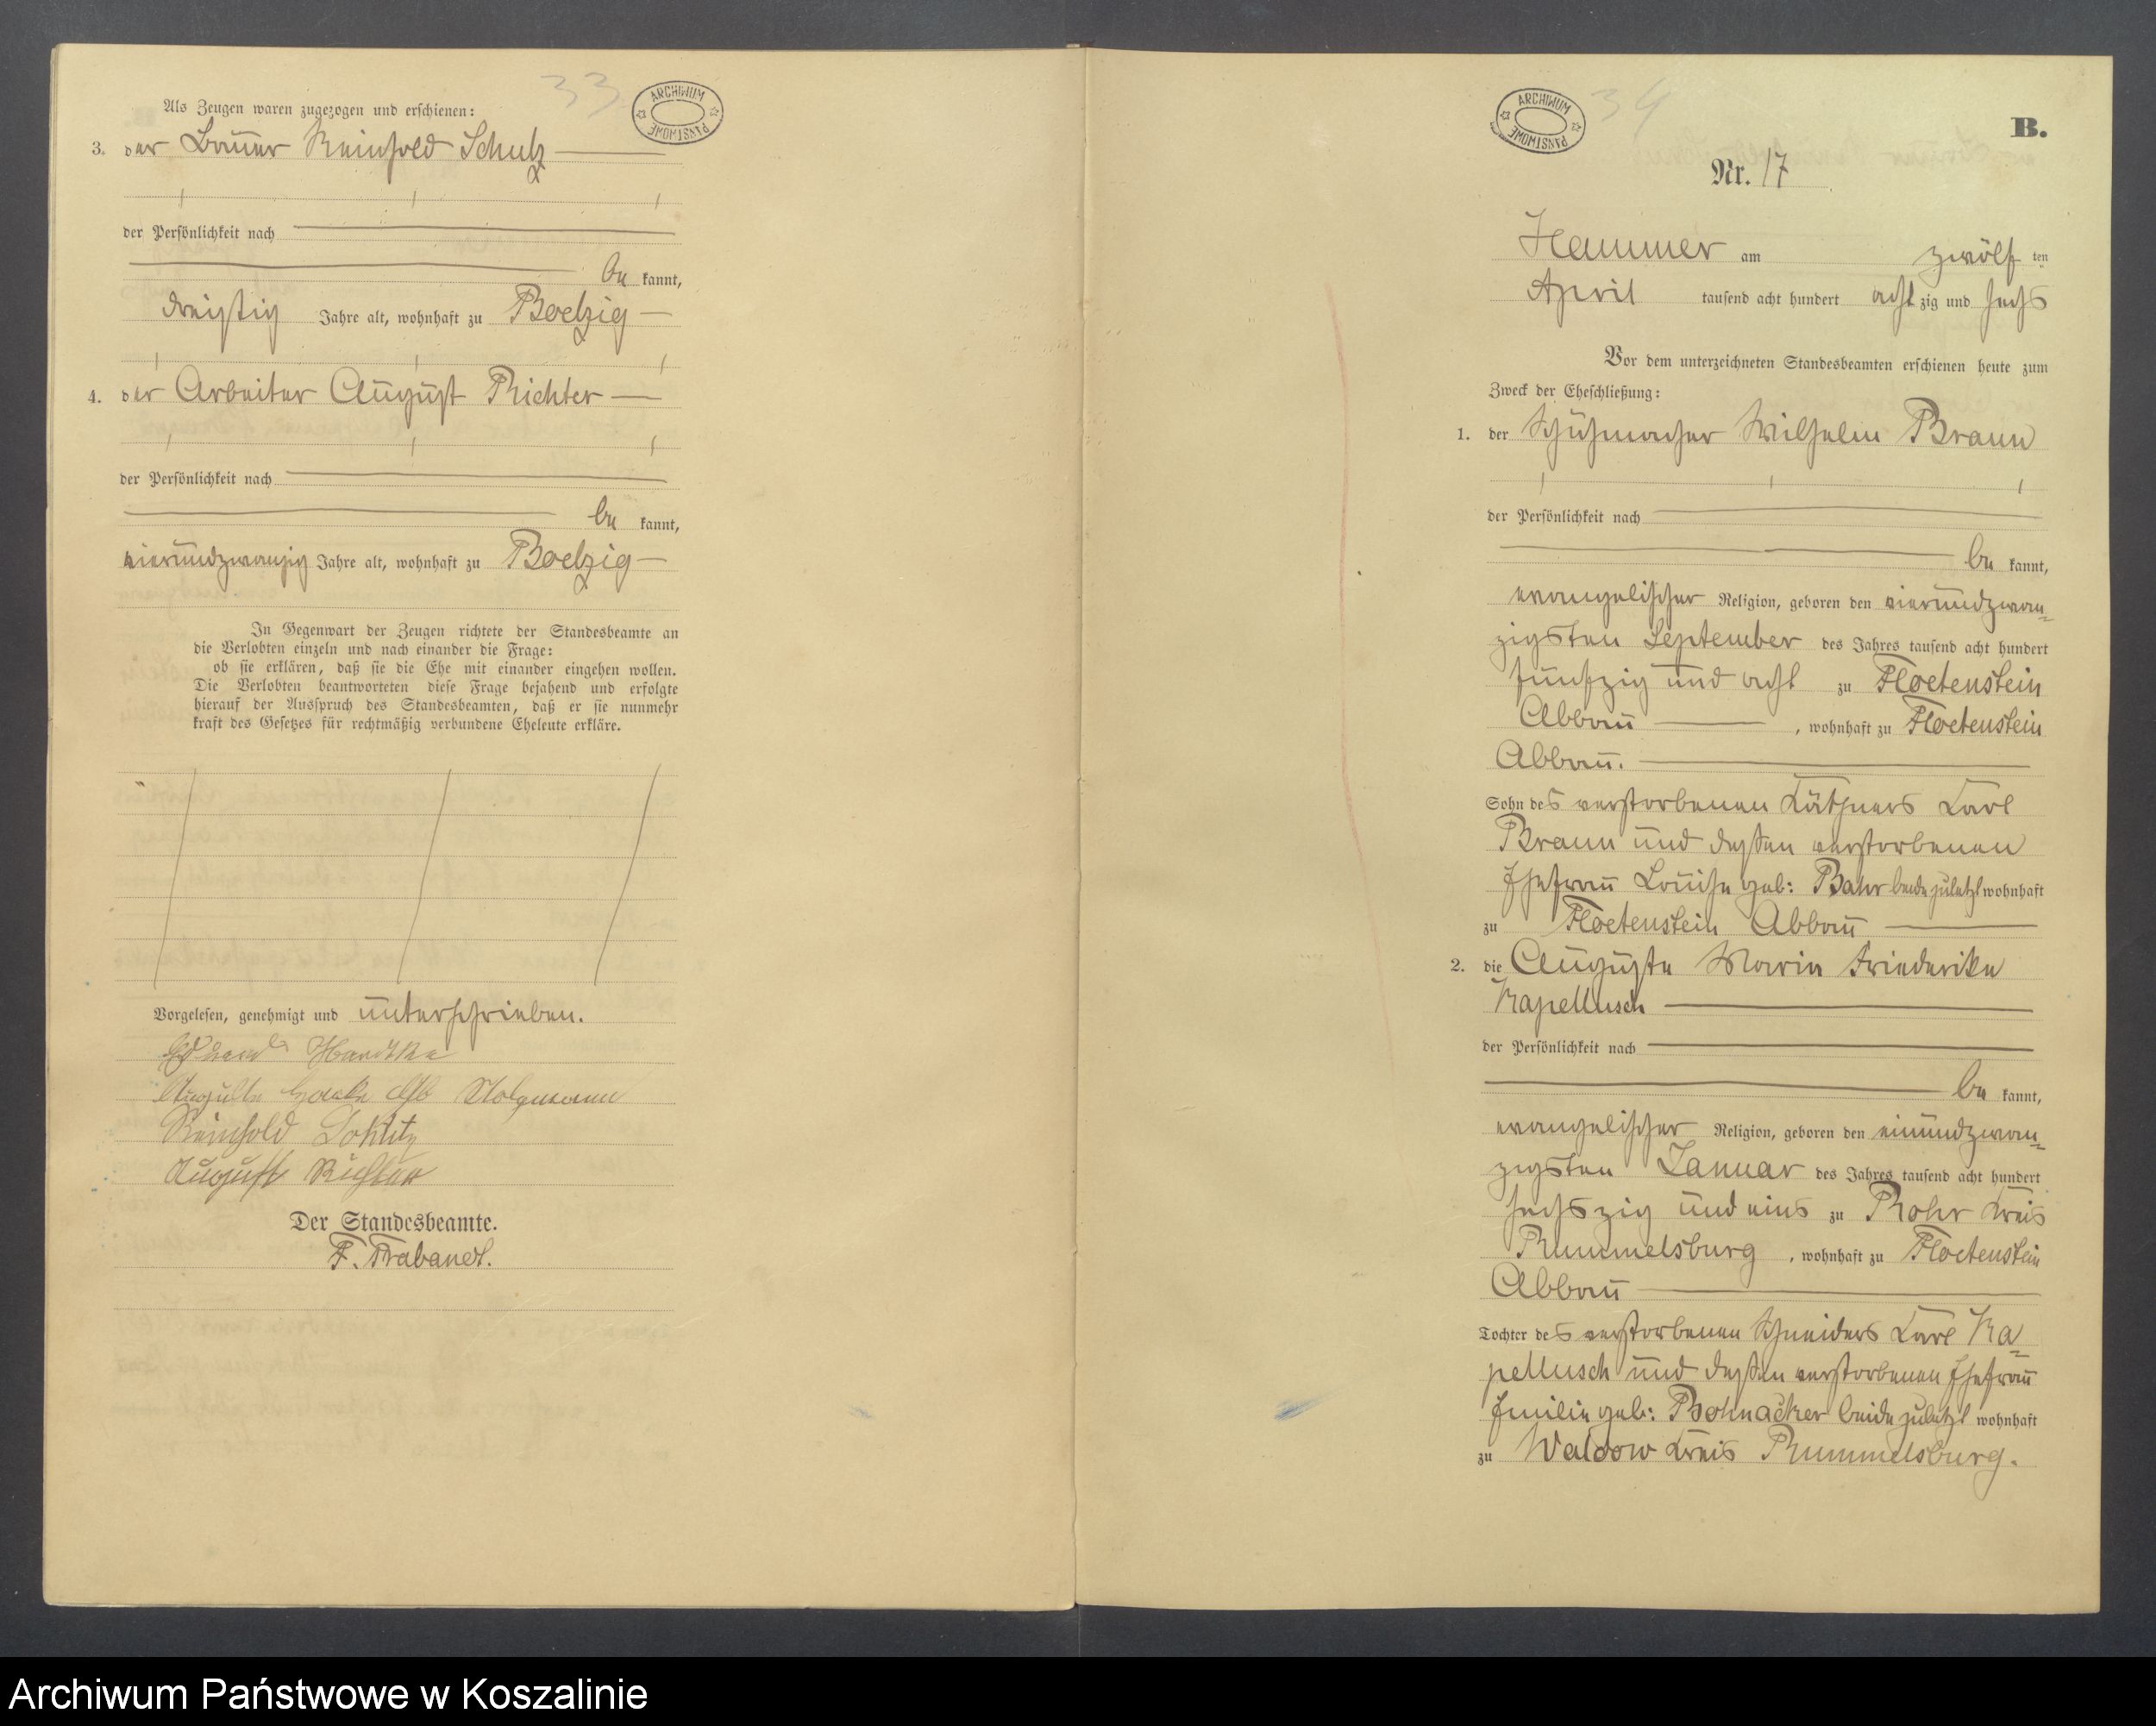 33
ARCHIWUM PAŃSTWOWE
Als Zeugen waren zugezogen und erschienen:
3. der Bauer Reinhold Schulz
der Persönlichkeit nach
be kannt,
dreißig Jahre alt, wohnhaft zu Boelzig
4. der Arbeiter August Richter
der Persönlichkeit nach
be kannt,
vierundzwanzig Jahre alt, wohnhaft zu Boelzig
In Gegenwart der Zeugen richtete der Standesbeamte an
die Verlobten einzeln und nach einander die Frage:
ob sie erklären, daß sie die Ehe mit einander eingehen wollen.
Die Verlobten beantworteten diese Frage bejahend und erfolgte
hierauf der Ausspruch des Standesbeamten, daß er sie nunmehr
kraft des Gesetzes für rechtmäßig verbundene Eheleute erkläre.
Vorgelesen, genehmigt und unterschrieben.
Auguste
Reinhold
August Richter
Der Standesbeamte.
F. Trabandt.
34
ARCHIWUM PAŃSTWOWE
B.
Nr. 17
Hammer am zwölf ten
April tausend acht hundert acht zig und sechs
Vor dem unterzeichneten Standesbeamten erschienen heute zum
Zweck der Eheschließung:
1. der Schuhmacher Wilhelm Braun
der Persönlichkeit nach
be kannt,
evangelischer Religion, geboren den vierundzwan=
zigsten September des Jahres tausend acht hundert
fünfzig und acht zu Floetenstein
Abbau , wohnhaft zu Floetenstein
Abbau.
Sohn des verstorbenen Käthners Carl
Braun und dessen verstorbenen
Ehefrau Louise geb: Bahr beide zuletzt wohnhaft
zu Floetenstein Abbau
2. die Auguste Marie Friederike
Kapellusch
der Persönlichkeit nach
be kannt,
evangelischer Religion, geboren den einundzwan=
zigsten Januar des Jahres tausend acht hundert
sechszig und eins zu Rohr Kreis
Rummelsburg , wohnhaft zu Floetenstein
Abbau
Tochter des verstorbenen Schneiders Carl Ka=
pellusch und dessen verstorbenen Ehefrau
Emilie geb: Bohnacker beide zuletzt wohnhaft
zu Waldow Kreis Rummelsburg.
Archiwum Państwowe w Koszalinie